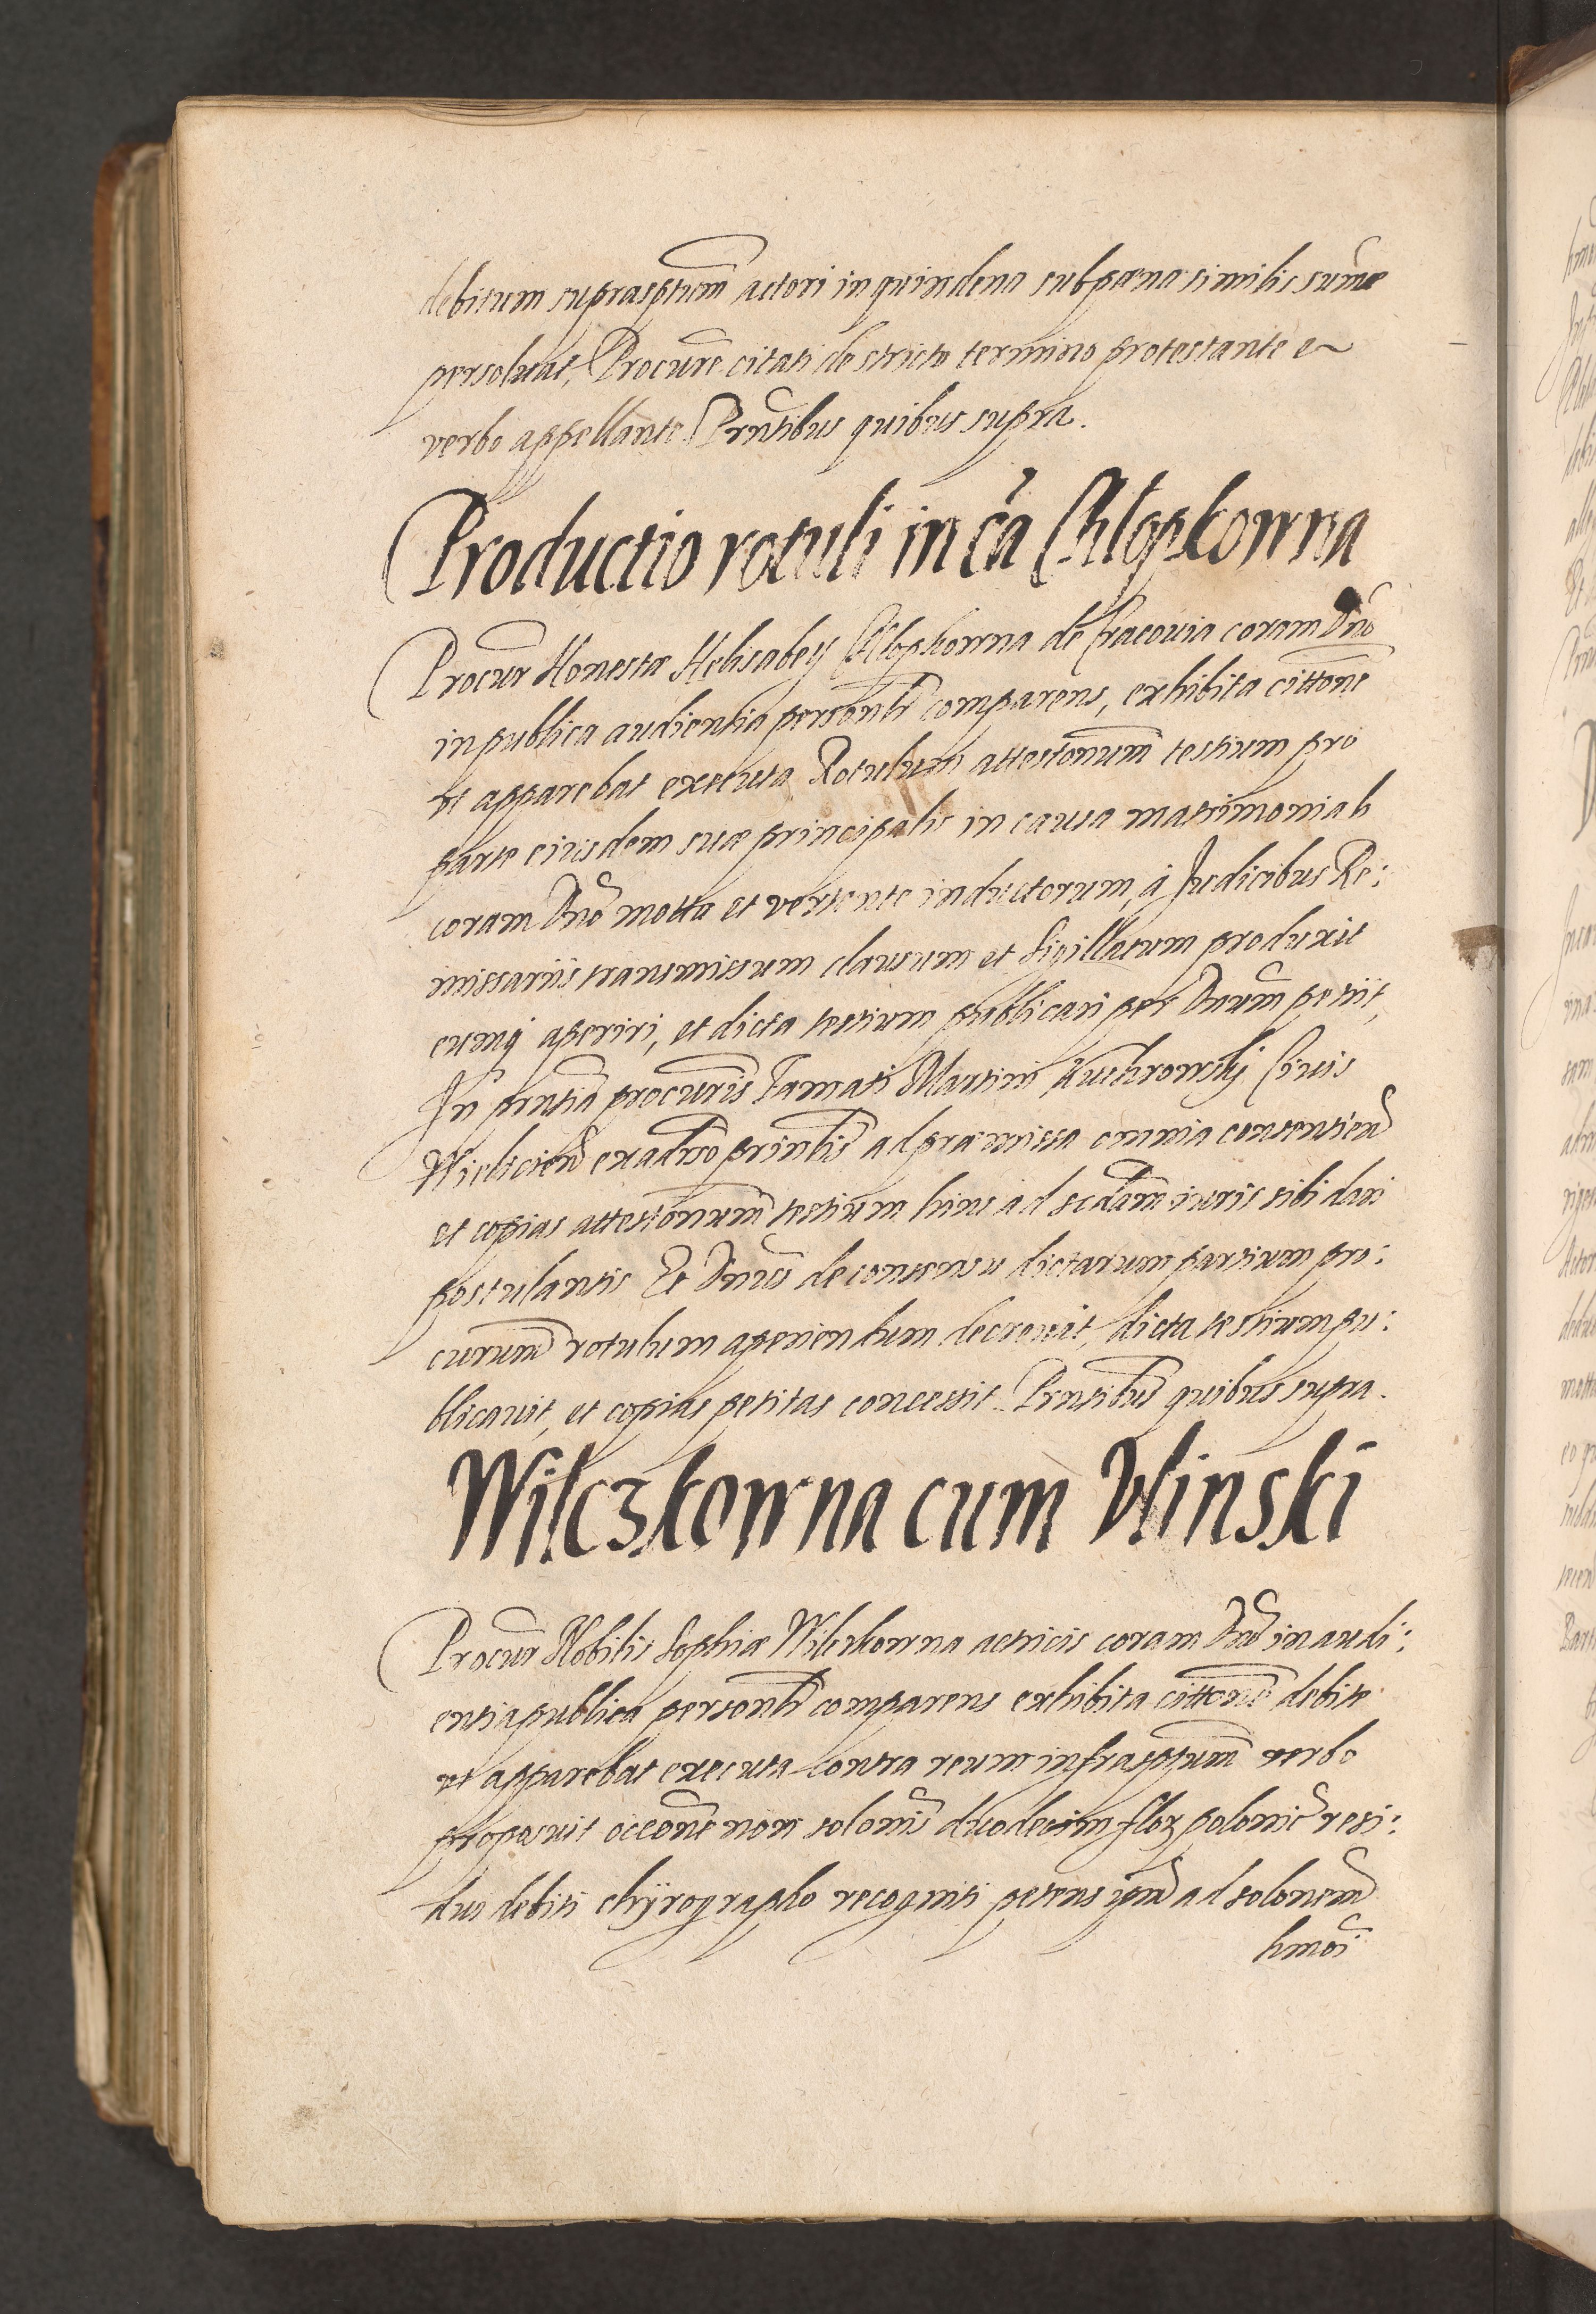 debitum suprasptum̄ actori in quindena sub pœna similis sum̄æ
persoluat, Procur̄e citati de stricto termino protestante e
verbo appellante. Prn̄tibus quibus supra.
Productio rotuli in cā Chlopkowna
Procur̄ Honestæ Helisabey Chlopkowna de Cracouia coram Dn̄o
in publica audientia personl̄r comparens, exhibita citt̄one
vt apparebat executa Rotulum attestōnum testium pro
parte eiusdem suæ principalis in causa matrimoniali
coram Dn̄o motta et vertente inductorum, à Judicibus Re:
missariis transmissum clausum et Sigillatum produxit
eumq̄ aperiri, et dicta testium publicari per Dn̄um petiit,
In prn̄tia procur̄is Famati Martini Kuchrowskij Ciuis
Wielicien̄ ex aduso prin̄lis ad præmissa omnia consentien̄
et copias attestōnum testium huius ad sc̄dam iuris sibi dari
postulantis Et Dn̄us de consensu dictarum partium pro:
curum̄ rotulum aperiendum decreuit, dicta testium pu:
blicauit, et copias petitas concessit. Prn̄tibus quibus supra.
Wilczkowna cum Vlinski
Procur̄ Nobilis Sophiæ Wilczkowna actricis coram Dn̄o in audi:
entia publica personl̄r comparens exhibita citt̄one debite
vt apparebat executa contra reum infrasptum̄ verbo
proposuit occōne non solōnis duodecim flor̄ polonic̄ resi:
dui debiti chyrographo recogniti petens ip̄m ad solōnem
hmōi